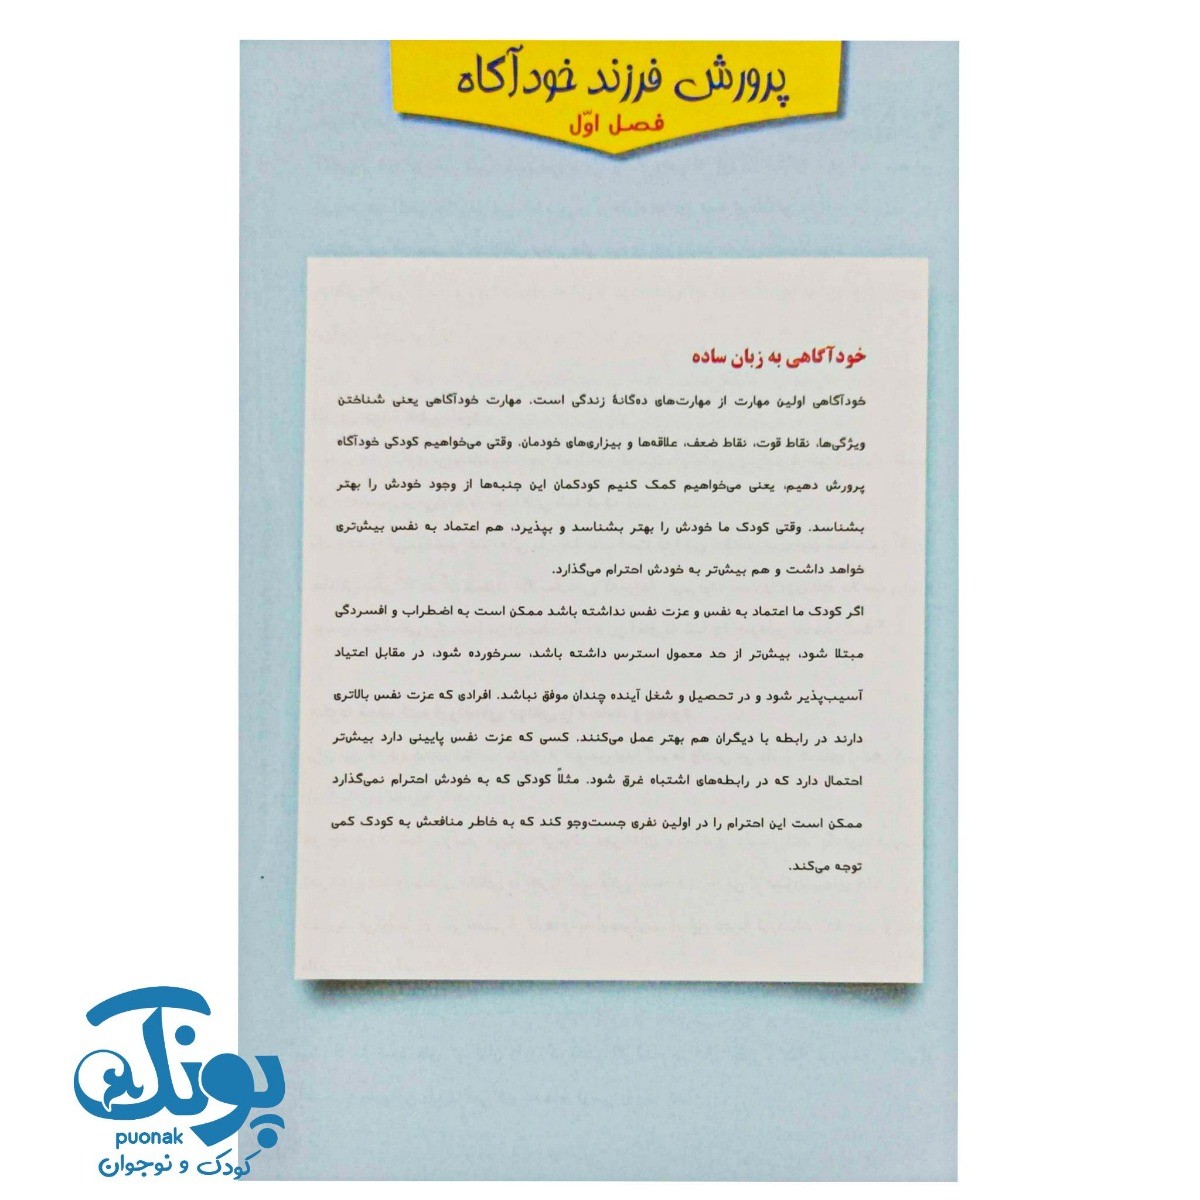 پرورش فرزند خودآگاه
فصل اوّل
خودآگاهی به زبان ساده
خودآگاهی اولین مهارت از مهارت‌های ده‌گانهٔ زندگی است. مهارت خودآگاهی یعنی شناختن
ویژگی‌ها، نقاط قوت، نقاط ضعف، علاقه‌ها و بیزاری‌های خودمان. وقتی می‌خواهیم کودکی خودآگاه
پرورش دهیم، یعنی می‌خواهیم کمک کنیم کودکمان این جنبه‌ها از وجود خودش را بهتر
بشناسد. وقتی کودک ما خودش را بهتر بشناسد و بپذیرد، هم اعتماد به نفس بیش‌تری
خواهد داشت و هم بیش‌تر به خودش احترام می‌گذارد.
اگر کودک ما اعتماد به نفس و عزت نفس نداشته باشد ممکن است به اضطراب و افسردگی
مبتلا شود، بیش‌تر از حد معمول استرس داشته باشد، سرخورده شود، در مقابل اعتیاد
آسیب‌پذیر شود و در تحصیل و شغل آینده چندان موفق نباشد. افرادی که عزت نفس بالاتری
دارند در رابطه با دیگران هم بهتر عمل می‌کنند. کسی که عزت نفس پایینی دارد بیش‌تر
احتمال دارد که در رابطه‌های اشتباه غرق شود. مثلاً کودکی که به خودش احترام نمی‌گذارد
ممکن است این احترام را در اولین نفری جست‌وجو کند که به خاطر منافعش به کودک کمی
توجه می‌کند.
پونک
puonak
کودک و نوجوان